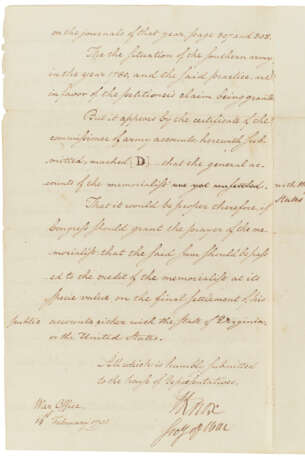 on the journals of that year, page 307 and 308.
That the situation of the southern army
in the year 1780, and the said practice, are
in favor of the petitioner's claim being granted
But it appears by the certificate of the
commissioner of army accounts herewith sub-
mitted, marked D, that the general ac-
counts of the memorialist are yet unsettled.
That it would be proper therefore, if
Congress should grant the prayer of the me-
morialist, that the said sum should be pass
ed to the credit of the memorialist at its
specie value on the final settlement of his
public accounts either with the state of Virginia,
or the United States.
All which is humbly submitted
to the house of Representatives.
HKnox
Secy of War
War Office
February